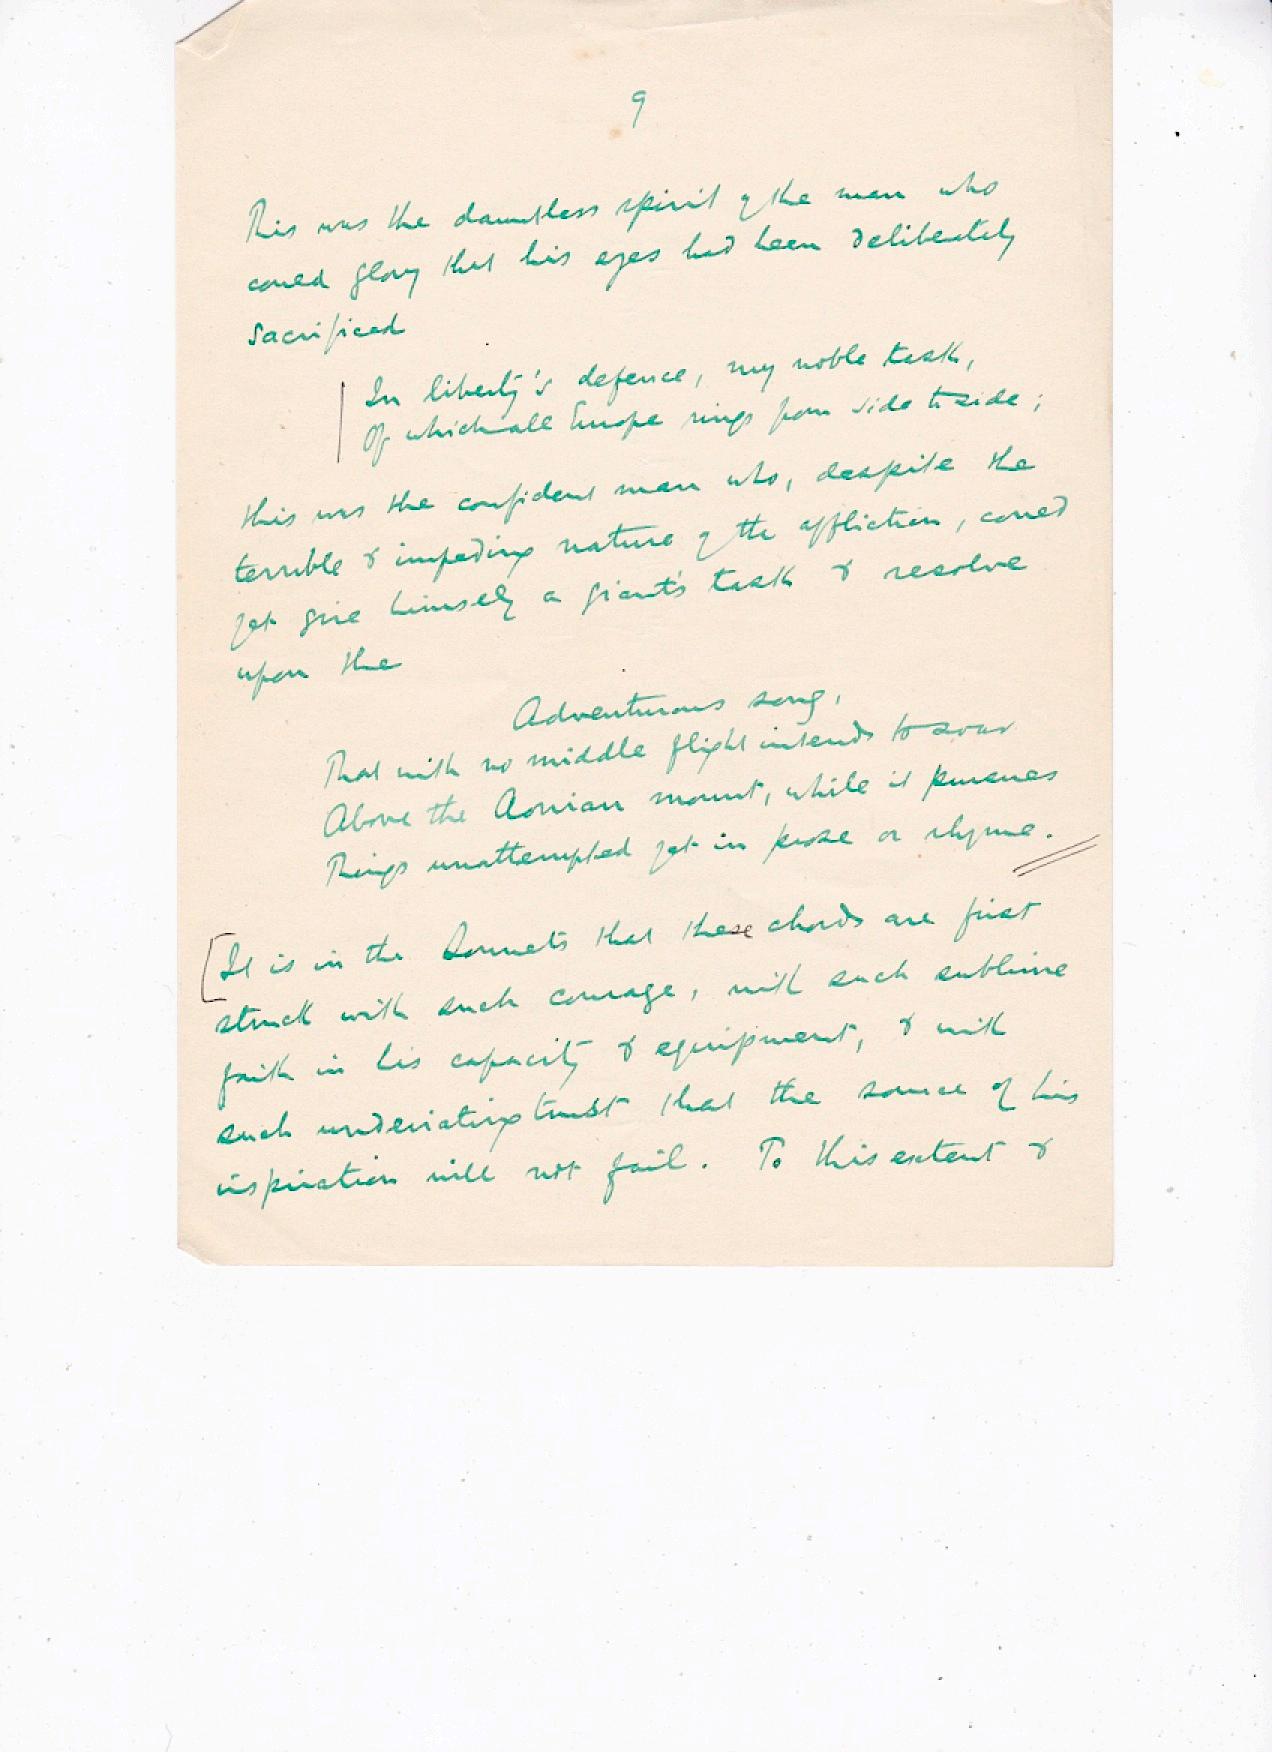 9
This was the dauntless spirit of the man who
could glory that his eyes had been deliberately
sacrificed
In liberty's defence, my noble task,
Of which all Europe rings from side to side;
this was the confident man who, despite the
terrible & impeding nature of the affliction, could
yet give himself a giant's task & resolve
upon the
Adventurous song,
That with no middle flight intends to soar
Above the Aonian mount, while it pursues
Things unattempted yet in prose or rhyme.
[It is in the Sonnets that these chords are first
struck with such courage, with such sublime
faith in his capacity & equipment, & with
such undeviating trust that the source of his
inspiration will not fail. To this extent &